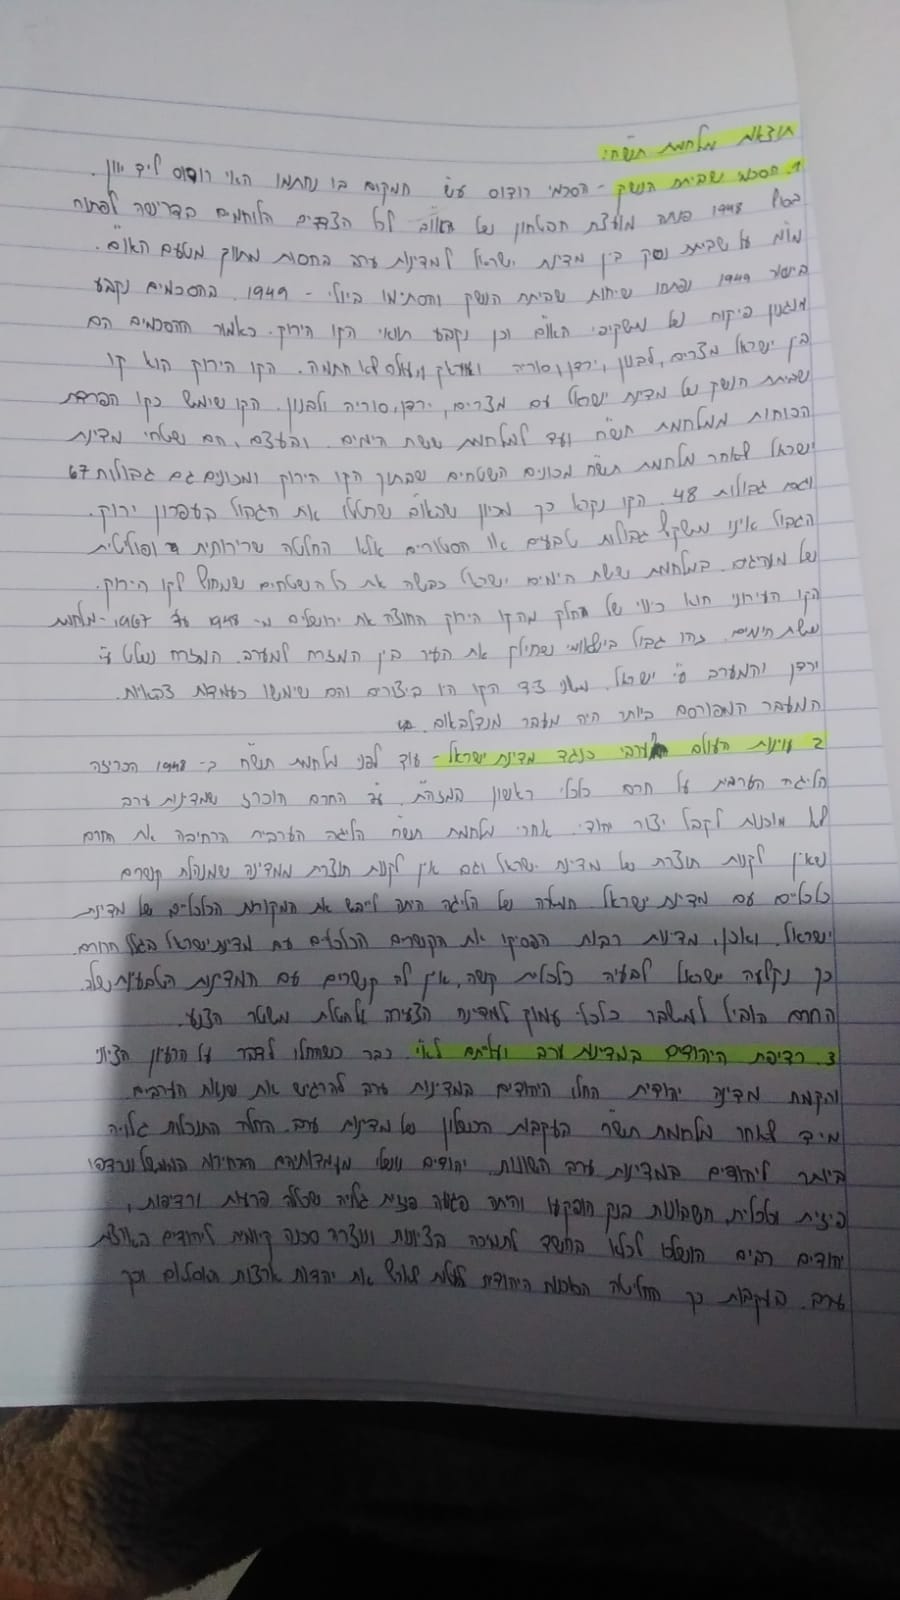 תוצאות מלחמת תש"ח:
1. הסכמי שביתת הנשק - הסכמי רודוס ע"ש המקום בו נחתמו האי רודוס ליד יוון.
בסוף 1948 פנתה מועצת הבטחון של האו"ם לכל הצדדים הלוחמים בדרישה לפתוח
מו"מ על שביתת נשק בין מדינת ישראל למדינות ערב בחסות מתווך מטעם האו"ם.
בינואר 1949 נפתחו שיחות שביתת הנשק והסתיימו ביולי - 1949. בהסכמים נקבע
מנגנון פיקוח של משקיפי האו"ם וכן נקבע תוואי הקו הירוק. כאמור ההסכמים הם
בין ישראל מצרים, לבנון, ירדן, סוריה ועיראק שלא חתמה. הקו הירוק הוא קו
שביתת הנשק של מדינת ישראל עם מצרים, ירדן, סוריה ולבנון. הקו שימש כקו הפרדת
הכוחות ממלחמת תש"ח ועד למלחמת ששת הימים. ובעצם, הם שטחי מדינת
ישראל לאחר מלחמת תש"ח מכונים השטחים שבתוך הקו הירוק ומכונים גם גבולות 67
וגם גבולות 48. הקו נקרא כך מכיוון שהאו"ם שרטטו את הגבול בעפרון ירוק.
הגבול אינו משקף גבולות טבעיים או היסטוריים אלא החלטה שרירותית ופוליטית
של מדינאים. במלחמת ששת הימים ישראל כבשה את כל השטחים שמחוץ לקו הירוק.
הקו העירוני הוא כינוי של חלק מהקו הירוק החוצה את ירושלים מ- 1948 עד 1967 - מלחמת
ששת הימים. זהו גבול בינלאומי שחילק את העיר בין המזרח למערב. המזרח נשלט ע"י
ירדן והמערב ע"י ישראל. משני צדי הקו היו ביצורים והם שימשו כעמדות צבאיות.
המעבר המפורסם ביותר היה מעבר מנדלבאום.
2 עוינות העולם הערבי כנגד מדינת ישראל - עוד לפני מלחמת תש"ח ב- 1948 הכריזה
הליגה הערבית על חרם כלכלי ראשון המזה"ת. עפ"י החרם הוכרז שמדינות ערב
לא מוכנות לקבל יצור יהודי. אחרי מלחמת תש"ח הליגה הערבית הרחיבה את החרם
שאין לקנות תוצרת של מדינת ישראל וגם אין לקנות תוצרת ממדינה שמנהלת קשרים
כלכליים עם מדינת ישראל. מטרתה של הליגה היתה לייבש את המקורות הכלכליים של מדינת
ישראל. ואכן, מדינות רבות הפסיקו את הקשרים הכלכליים עם מדינת ישראל בגלל החרם.
כך נקלעה ישראל לבעיה כלכלית קשה, אין לה קשרים עם המדינות השכנות שלה.
החרם הוביל למשבר כלכלי עמוק למדינה הצעירה ולהטלת משטר הצנע.
3. רדיפת היהודים במדינות ערב ועלייתם לא"י. כבר כשהחלו לדבר על הרעיון הציוני
והקמת מדינה יהודית החלו היהודים במדינות ערב להרגיש את שנאת הערבים.
מיד לאחר מלחמת תש"ח בעקבות הכשלון של מדינות ערב. החלה התנכלות גלויה
ביותר ליהודים במדינות ערב השונות. יהודים נושלו מעמדותיהם הבכירות בממשל ונרדפו
פיזית וכלכלית, חשבונות בנק הופקעו והיתה פגיעה פיזית גלויה שכללה פרעות ורדיפות,
יהודים רבים הושלכו לכלא בחשד לתמיכה בציונות ונוצרה סכנה קיומית ליהודים בארצות
ערב. בעקבות כך החליטה הסוכנות היהודית לעלות לארץ את יהדות ארצות האסלאם וכך